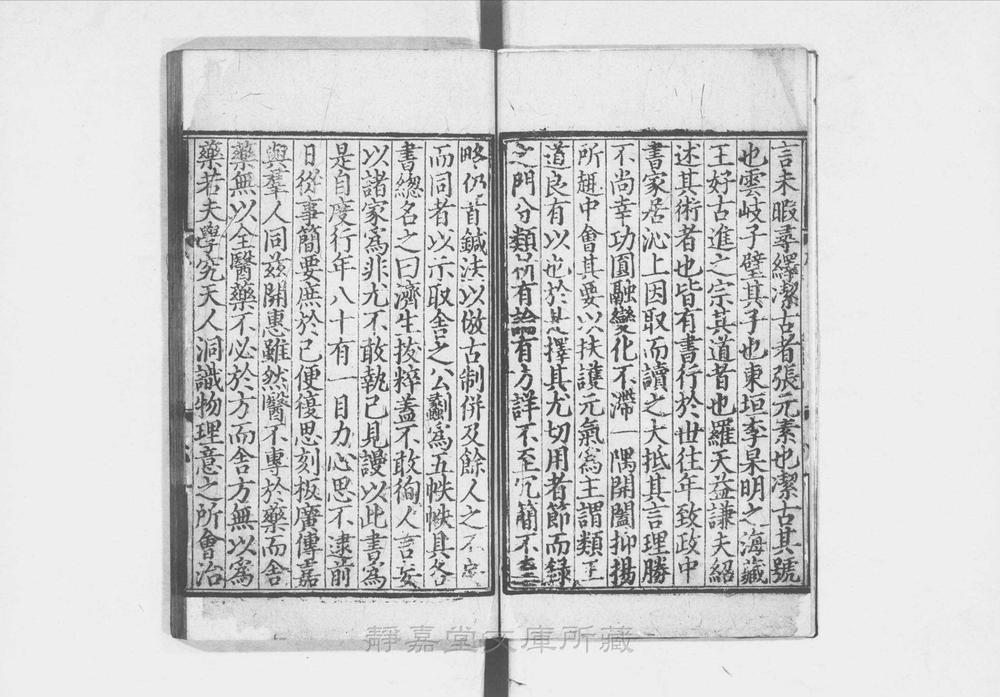 言未暇尋繹潔古者張元素也潔古其號
也雲岐子璧其子也東垣李杲明之海藏
王好古進之宗其道者也羅天益謙夫紹
述其術者也皆有書行於世往年致政中
書家居沁上因取而讀之大抵其言理勝
不尚幸功圓融變化不滯一隅開闔抑揚
所趣中會其要以扶護元氣爲主謂類王
道良有以也於是擇其尤切用者節而錄
之門分類析有論有方詳不至冗簡不至
略仍首鍼法以倣古制併及餘人之不
而同者以示取舍之公劃爲五帙帙具各
書緫名之曰濟生拔粹蓋不敢徇人言妄
以諸家爲非尤不敢執己見謾以此書爲
是自度行年八十有一目力心思不逮前
日從事簡要庶於己便復思刻板廣傳嘉
與羣人同兹開惠雖然醫不專於藥而舍
藥無以全醫藥不必於方而舍方無以爲
藥若夫學究天人洞識物理意之所會治
靜嘉堂文庫所藏